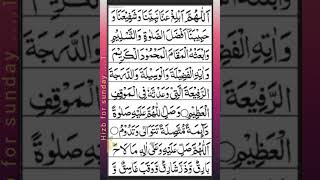 اَللّٰهُمَّ اَبْلِغْ عَنَّا نَبِيَّنَا وَشَفِيْعَنَا وَ
حَبِيْبَنَا اَفْضَلَ الصَّلٰوةِ وَالتَّسْلِيْمِ
وَابْعَثْهُ الْمَقَامَ الْمَحْمُوْدَ الْكَرِيْمَ
وَاٰتِهِ الْفَضِيْلَةَ وَالْوَسِيْلَةَ وَالدَّرَجَةَ
الرَّفِيْعَةَ الَّتِيْ وَعَدْتَّهٗ فِي الْمَوْقِفِ
الْعَظِيْمِ وَصَلِّ اللّٰهُمَّ عَلَيْهِ صَلٰوةً
دَآئِمَةً مُّتَّصِلَةً تَتَوَالٰى وَتَدُوْمُ
اَللّٰهُمَّ صَلِّ عَلَيْهِ وَعَلٰى اٰلِهٖ مَا لَاحَ
بَارِقٌ وَذَرَّ شَارِقٌ وَوَقَبَ غَاسِقٌ وَ
Hizb for sunday